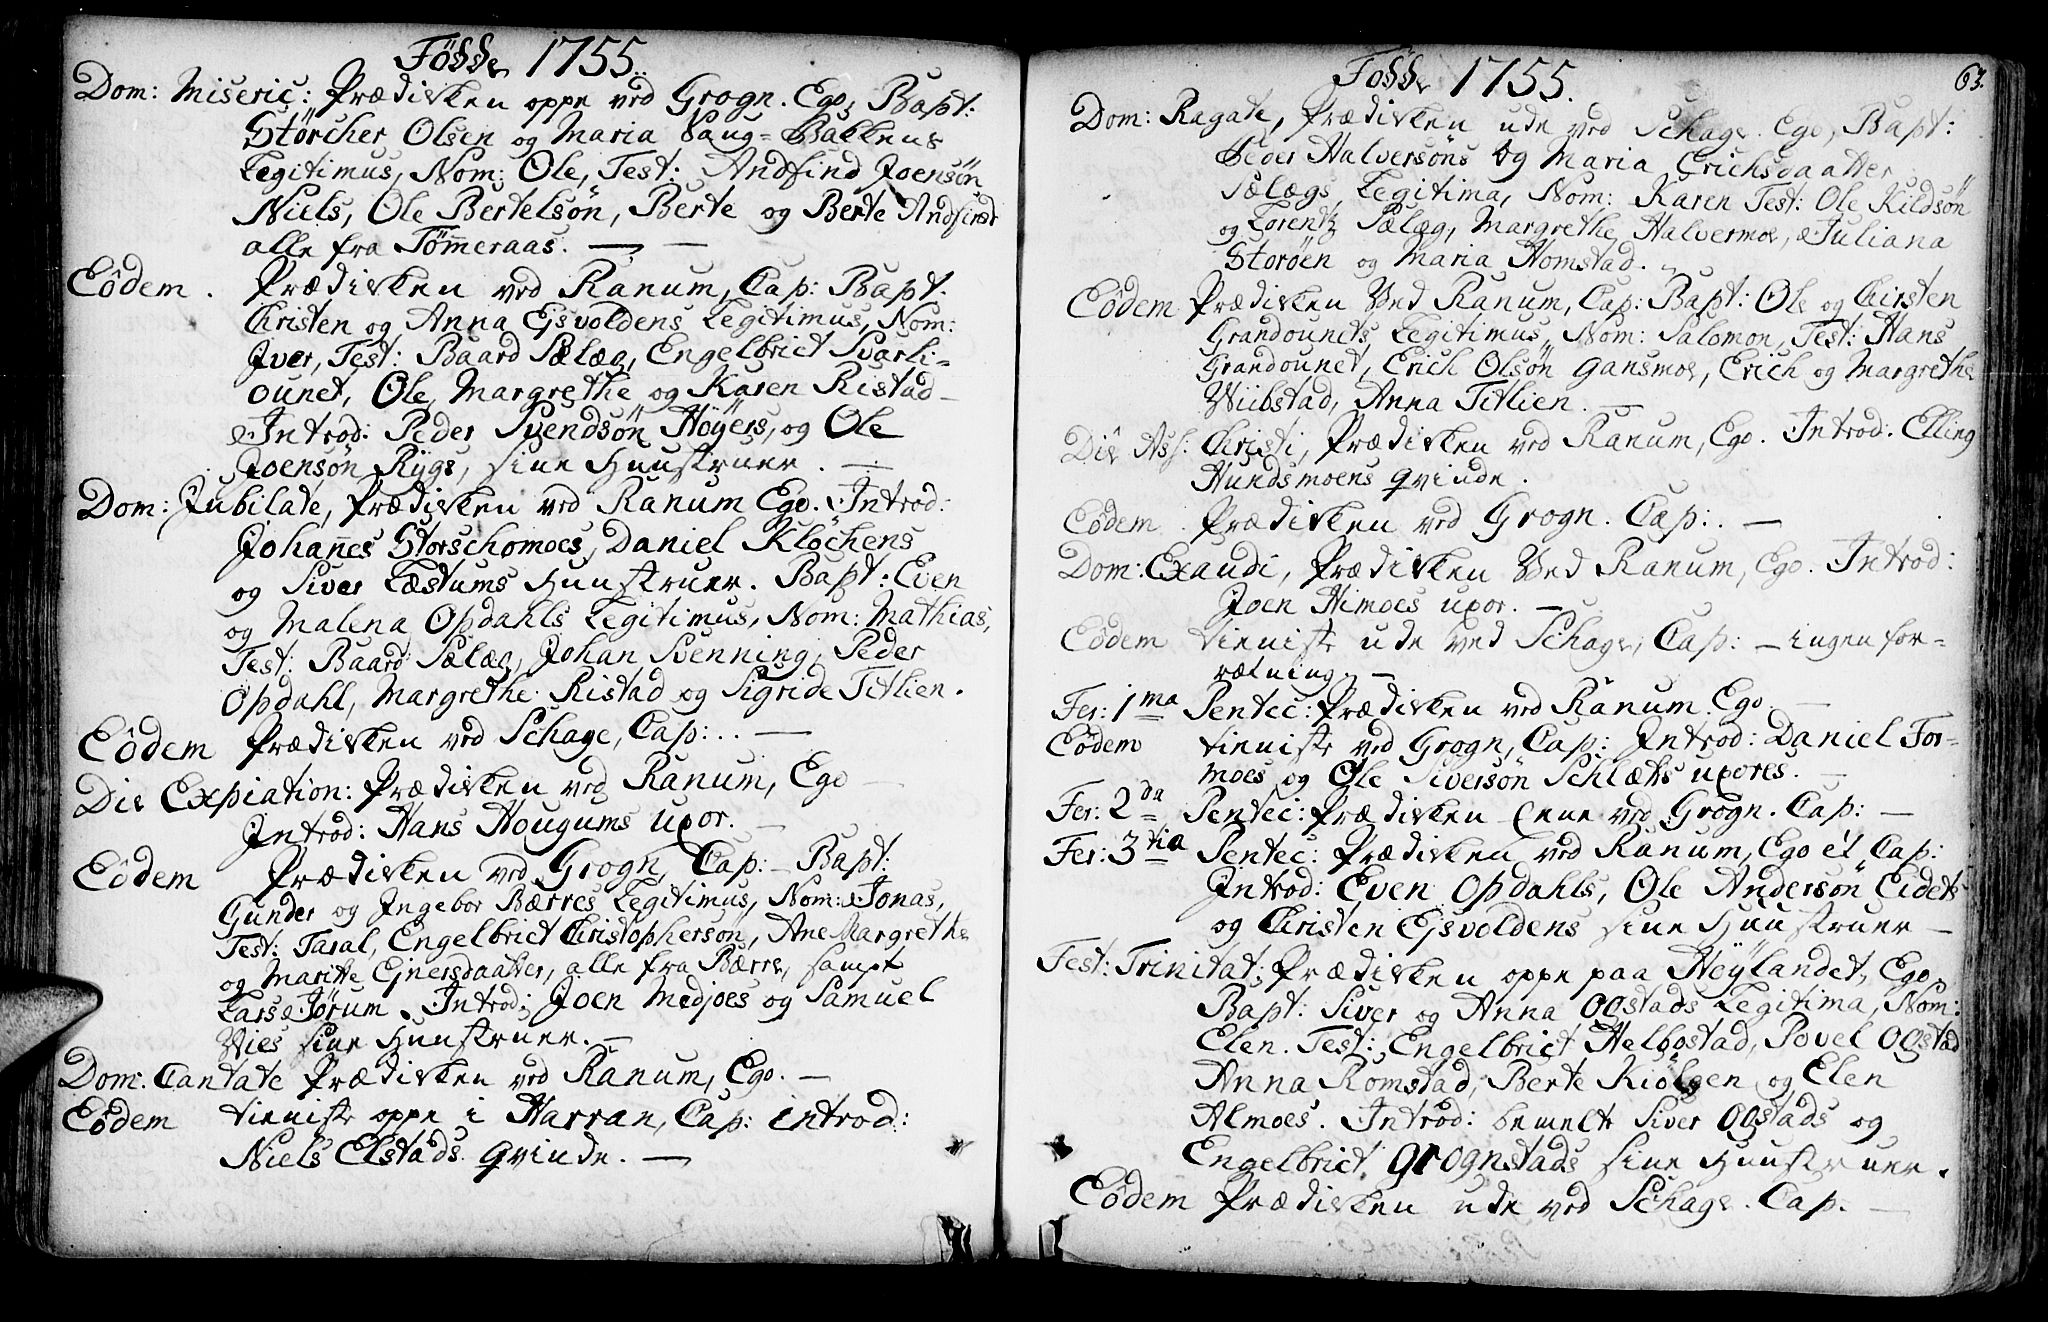 Födde 1755.
Dom: Miseric: Prædicken oppe ved Grogn. Ego, Bapt:
Störcher Olsen og Maria Saug=Bakkens
Legitimus, Nom: Ole, Test: Andfind Joensön
Niels, Ole Bertelsön, Berte og Berte Andfinst
alle fra Tömmeraas. —
Eôdem. Prædicken ved Ranum, Cap: Bapt.
Christen og Anna Ejsvoldens Legitimus, Nom:
Iver, Test: Baard Sælæg, Engelbrict Svarli-
ounet, Ole, Margrethe og Karen Ristad
Introd: Peder Svendsön Höyers, og Ole
Joensön Rygs, sine Huustruer. —
Dom: Jubilate, Prædicken ved Ranum Ego. Introd:
Johannes Storschomoes, Daniel Klöchens
og Siver Læstums Huustruer. Bapt: Even
og Malena Opdahls Legitimus, Nom: Mathias,
Test: Baard Sælæg, Johan Svenning, Peder
Opdahl, Margrethe Ristad og Sigride Titlien.
Eôdem Prædicken ved Schage, Cap: . . —
Die Expiation: Prædicken ved Ranum, Ego —
Introd: Hans Hougums uxor. —
Eôdem Prædicken ved Grogn, Cap: — Bapt:
Gunder og Ingebor Bærres Legitimus, Nom: Jonas,
Test: Taral, Engelbrict Christophersön, Ane Margrethe
og Maritte Ejnersdaatter, alle fra Bærre, sampt
Lars Jörum. Introd: Joen Medjoes og Samuel
Wies sine Huustruer. —
Dom: Cantate Prædicken ved Ranum, Ego. —
Eôdem tieniste oppe i Harran, Cap: introd:
Niels Elstads qvinde. —
63.
Födde 1755.
Dom: Rogate, Prædicken ude ved Schage. Ego, Bapt:
Peder Halversöns og Maria Erichsdaatter
Sælægs, Legitima, Nom: Karen Test: Ole Kildsön
og Lorentz Sælæg, Margrethe Halvermoe, Juliana
Storöen og Maria Homstad.
Eôdem Prædicken Ved Ranum, Cap: Bapt: Ole og Chirsten
Grandounets Legitimus, Nom: Salomon, Test: Hans
Grandounet, Erich Olsön Gansmoe, Erich og Margrethe
Wiibstad, Anna Titlien. —
Die Ass: Christi, Prædicken ved Ranum, Ego. Introd: Elling
Hundsmoens qvinde.
Eôdem. Prædicken ved Grogn. Cap: . —
Dom: Exaudi, Prædicken Ved Ranum, Ego. Introd:
Joen Himoes uxor. —
Eôdem tieniste ude ved Schage, Cap: — ingen for=
rætning. —
Fer: 1ma Pentec: Prædicken ved Ranum Ego. —
Eôdem tieniste ved Grogn, Cap: Introd: Daniel For-
moes og Ole Siversön Schlæts uxores. —
Fer: 2da Pentec: Prædicken ene ved Grogn. Cap: —
Fer: 3tia Pentec: Prædicken ved Ranum, Ego et Cap:
Introd: Even Opdahls, Ole Andersön Eidets
og Christen Ejsvoldens sine Huustruer —
Fest: Trinitat: Prædicken oppe paa Höylandet, Ego.
Bapt: Siver og Anna Ogstads Legitima, Nom:
Elen. Test: Engelbrict Helbostad, Povel Ogstad
Anna Romstad, Berte Kiölgen og Elen
Almoes. Introd: bemelte Siver Ogstads og
Engelbrict Grognstads sine Huustruer.
Eôdem Prædicken ude ved Schage. Cap. —